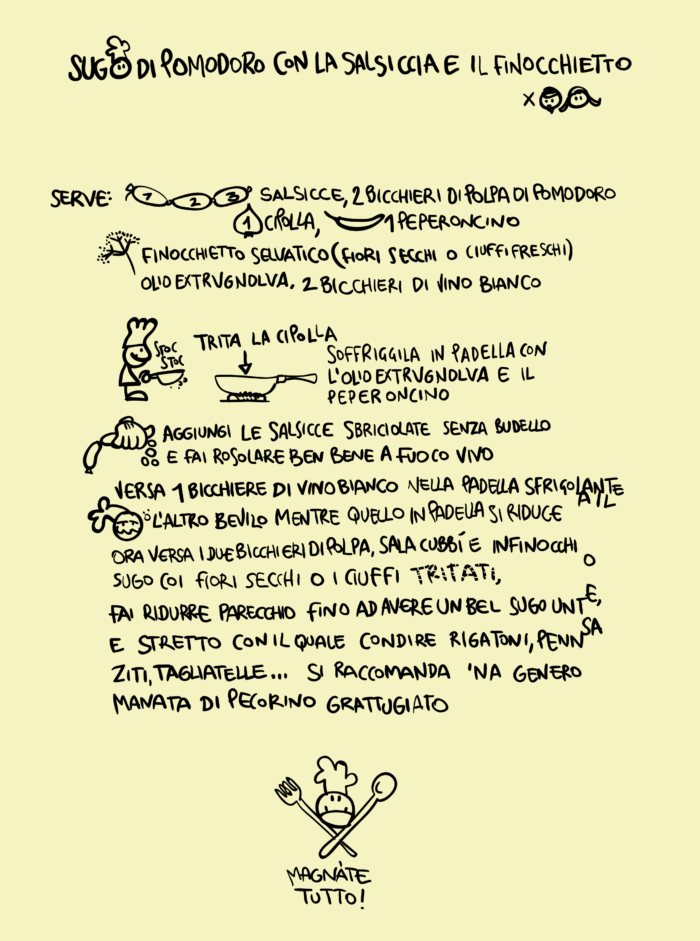 SUGO DI POMODORO CON LA SALSICCIA E IL FINOCCHIETTO
X
SERVE: 1 2 3 SALSICCE, 2 BICCHIERI DI POLPA DI POMODORO
1 CIPOLLA, 1 PEPERONCINO
FINOCCHIETTO SELVATICO (FIORI SECCHI O CIUFFI FRESCHI)
OLIO EXTRVGNOLVA, 2 BICCHIERI DI VINO BIANCO
STOC
STOC
TRITA LA CIPOLLA
SOFFRIGGILA IN PADELLA CON
L'OLIO EXTRVGNOLVA E IL
PEPERONCINO
AGGIUNGI LE SALSICCE SBRICIOLATE SENZA BUDELLO
E FAI ROSOLARE BEN BENE A FUOCO VIVO
VERSA 1 BICCHIERE DI VINO BIANCO NELLA PADELLA SFRIGOLANTE
L'ALTRO BEVILO MENTRE QUELLO IN PADELLA SI RIDUCE A IL
ORA VERSA I DUE BICCHIERI DI POLPA, SALA CUBBÍ E INFINOCCHIO
SUGO COI FIORI SECCHI O I CIUFFI TRITATI,
FAI RIDURRE PARECCHIO FINO AD AVERE UN BEL SUGO UNT
E STRETTO CON IL QUALE CONDIRE RIGATONI, PENNE,
ZITI, TAGLIATELLE... SI RACCOMANDA 'NA GENEROSA
MANATA DI PECORINO GRATTUGIATO
MAGNÀTE
TUTTO!